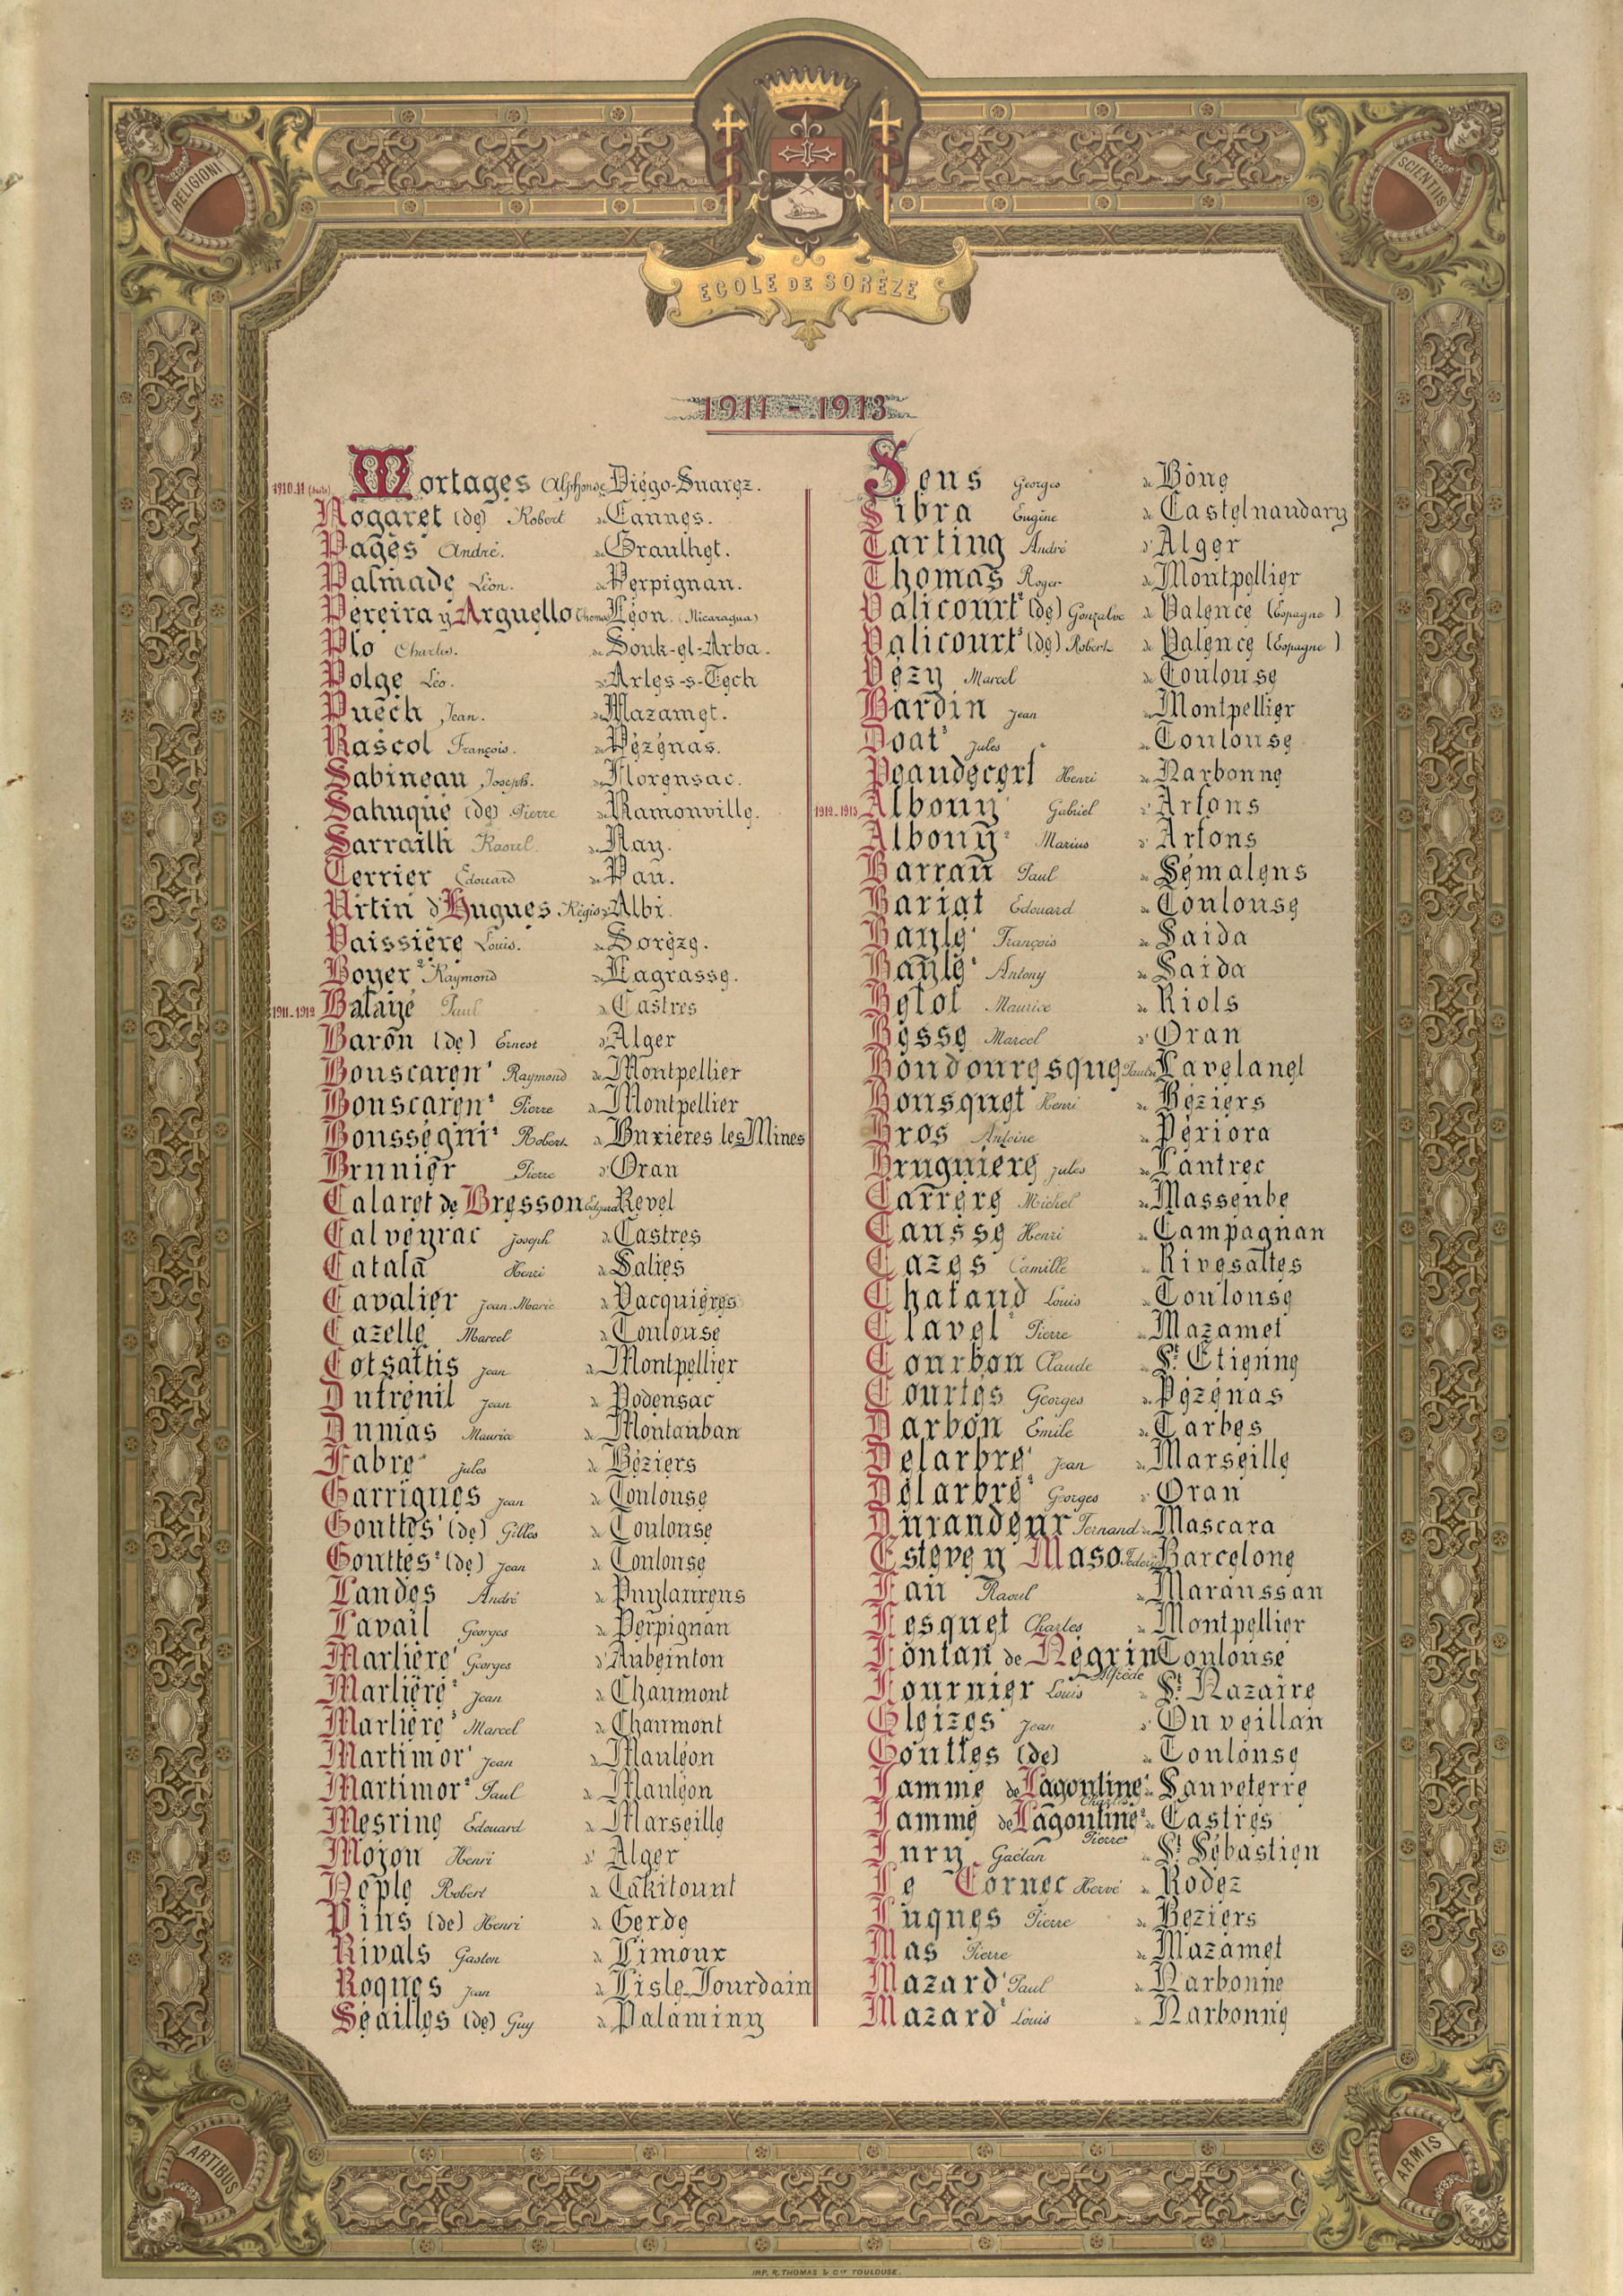 RELIGIONI
SCIENTIIS
ECOLE DE SORÈZE
1911 - 1913
1910-11 (suite) Mortages Alphonse Diégo-Suarez.
Nogaret (de) Robert de Cannes.
Pagès André. de Graulhet.
Palmade Léon. de Perpignan.
Pereira y Arguello Thomas Léon. (Nicaragua)
Plo Charles. de Souk-el-Arba.
Polge Léo. d'Arles-s-Tech
Puech Jean. de Mazamet.
Rascol François. de Pézénas.
Sabineau Joseph. de Florensac.
Sahuqué (de) Pierre de Ramonville.
Sarrailh Raoul. de Nay.
Terrier Edouard de Pau.
Urtin d'Hugues Régis d'Albi.
Vaissière Louis. de Sorèze.
Boyer² Raymond de Lagrasse.
1911-1912 Balayé Paul de Castres
Baron (de) Ernest d'Alger
Bouscaren¹ Raymond de Montpellier
Bouscaren² Pierre de Montpellier
Bousségui² Robert de Buxières les Mines
Brunier Pierre d'Oran
Calaret de Bresson Edgard Revel
Calveyrac Joseph de Castres
Catala Henri de Salies
Cavalier Jean-Marie de Vacquières
Cazelle Marcel de Toulouse
Cotsaftis Jean de Montpellier
Dutrénil Jean de Podensac
Dumas Maurice de Montauban
Fabre Jules de Béziers
Garrigues Jean de Toulouse
Gouttes¹ (de) Gilles de Toulouse
Gouttes² (de) Jean de Toulouse
Landes André de Puylaurens
Lavail Georges de Perpignan
Marlière¹ Georges d'Aubenton
Marlière² Jean de Chaumont
Marlière³ Marcel de Chaumont
Martimor¹ Jean de Mauléon
Martimor² Paul de Mauléon
Mesrine Edouard de Marseille
Mojon Henri d'Alger
Neple Robert de Takitount
Pins (de) Henri de Gerde
Rivals Gaston de Limoux
Roques Jean de Lisle-Jourdain
Séailles (de) Guy de Palaminy
Sens Georges de Bône
Sibra Eugène de Castelnaudary
Tarting André d'Alger
Thomas Roger de Montpellier
Valicourt² (de) Gonzalve de Valence (Espagne)
Valicourt³ (de) Robert de Valence (Espagne)
Vézy Marcel de Toulouse
Bardin Jean de Montpellier
Doat³ Jules de Toulouse
Peaudecerf Henri de Narbonne
1912-1913 Albouy¹ Gabriel d'Arfons
Albouy² Marius d'Arfons
Barrau Paul de Sémalens
Bariat Edouard de Toulouse
Bayle¹ François de Saida
Bayle² Antony de Saida
Betol Maurice de Riols
Besse Marcel d'Oran
Boudouresque Paul de Lavelanet
Bousquet Henri de Béziers
Bros Antoine de Périora
Bruguière Jules de Lautrec
Carrère Michel de Masseube
Causse Henri de Campagnan
Cazes Camille de Rivesaltes
Chataud Louis de Toulouse
Clavel² Pierre de Mazamet
Courbon Claude de St Etienne
Courtès Georges de Pézénas
Darbon Emile de Tarbes
Delarbre¹ Jean de Marseille
Delarbre² Georges d'Oran
Durandeur Fernand de Mascara
Esteve y Maso Federico Barcelone
Fau Raoul de Maraussan
Fesquet Charles de Montpellier
Fontan de Négrin Toulouse
Alfrède
Fournier Louis de St Nazaire
Gleizes Jean d'Ouveillan
Gouttes (de) de Toulouse
Jamme de Lagoutine¹ de Sauveterre
Charles
Jamme de Lagoutine² de Castres
Pierre
Jury Gaëtan de St Sébastien
Le Cornec Hervé de Rodez
Luques Pierre de Beziers
Mas Pierre de Mazamet
Mazard¹ Paul de Narbonne
Mazard² Louis de Narbonne
ARTIBUS
ARMIS
IMP. R. THOMAS & Cie TOULOUSE.